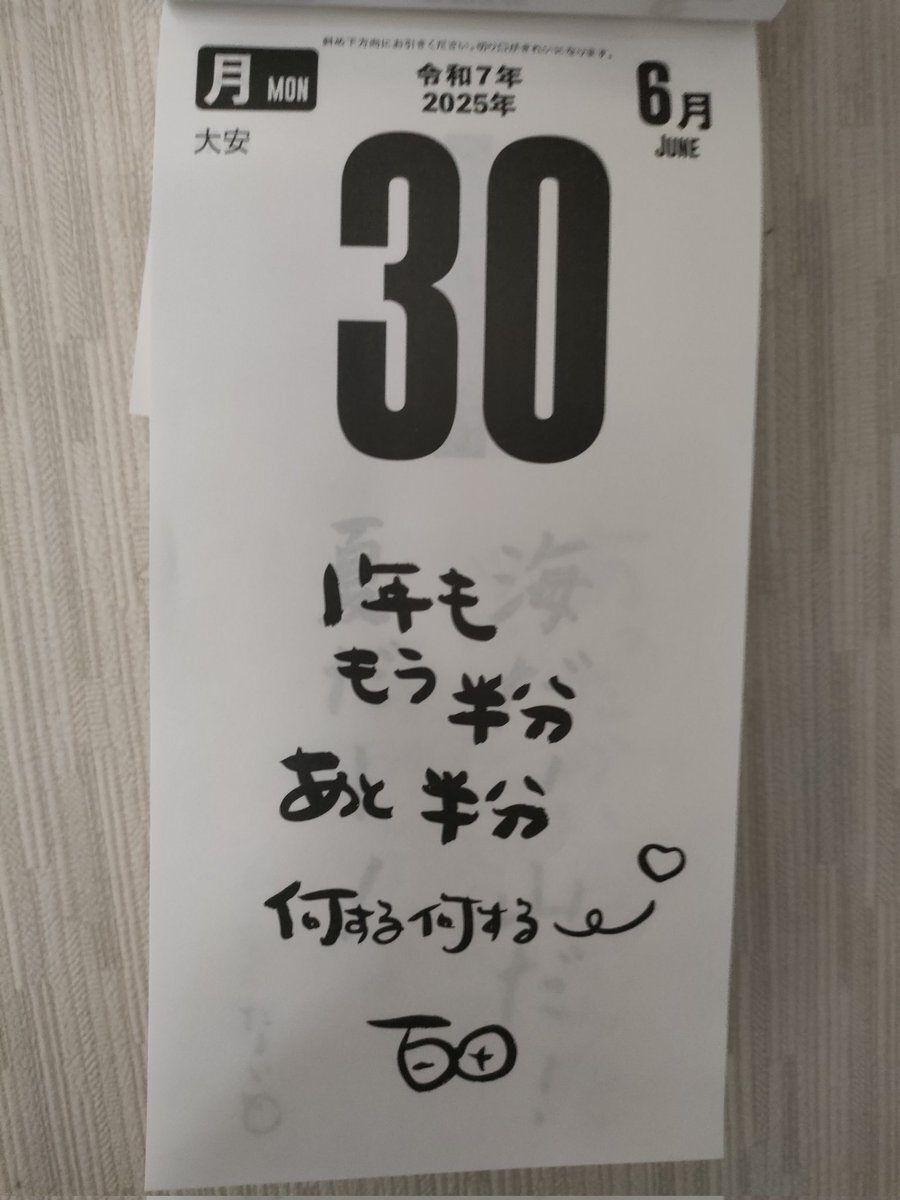 斜め下方向にお引きください。切り口がきれいになります。
月 MON
令和7年
2025年
6月
JUNE
大安
30
1年も
もう半分
あと半分
何する何する
百田